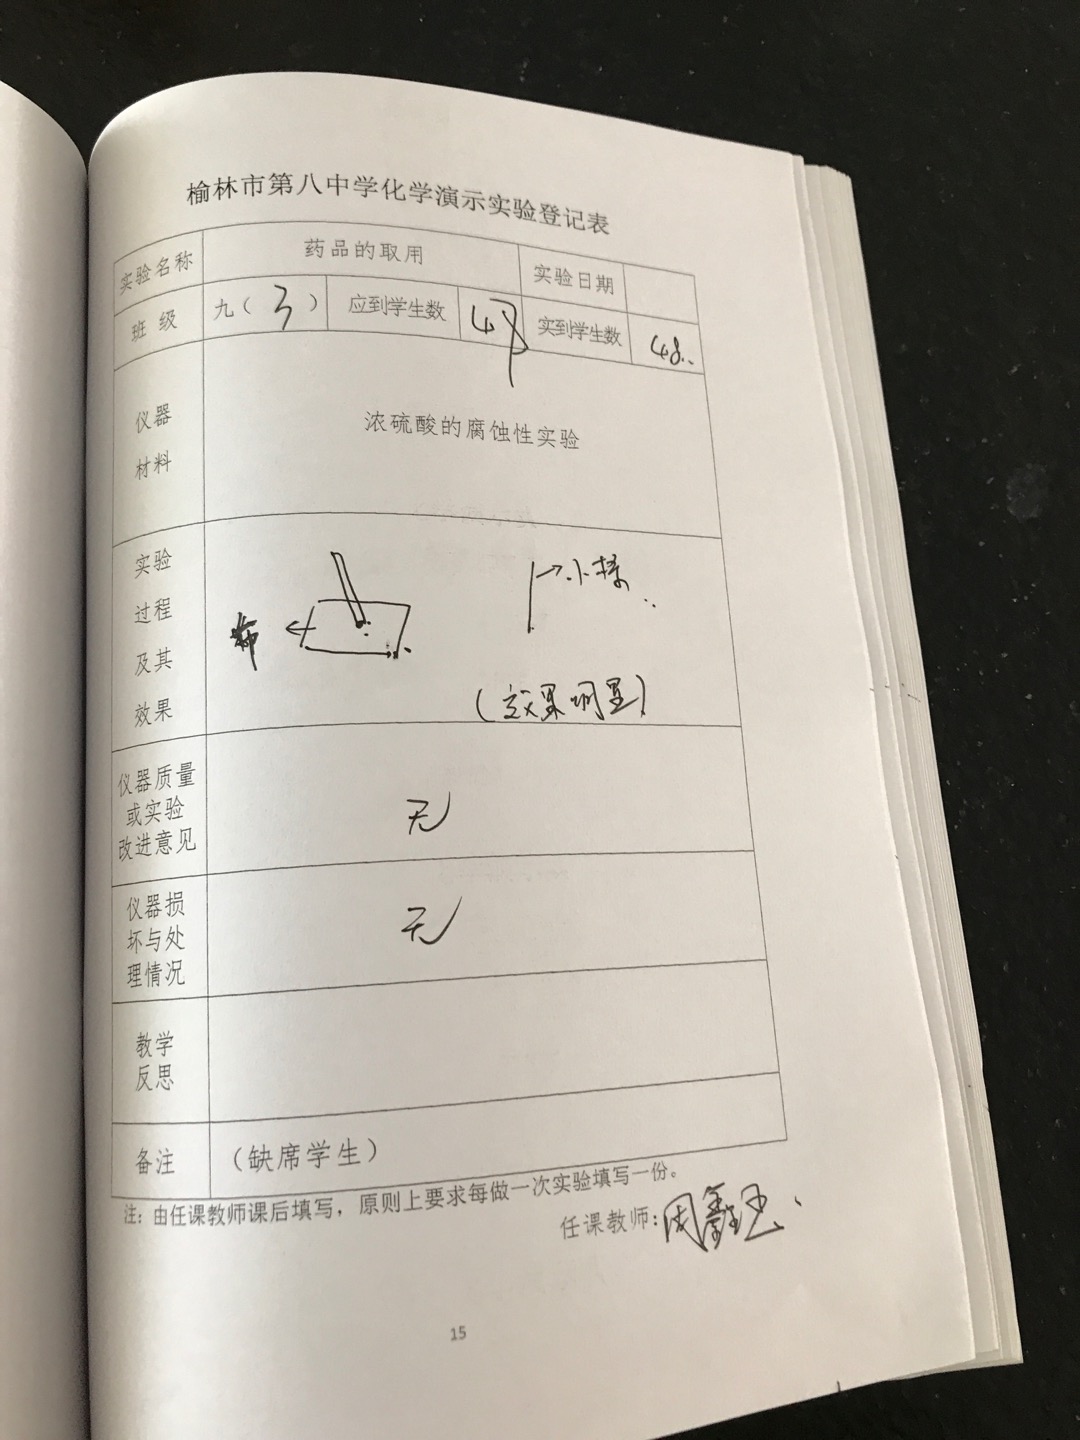 榆林市第八中学化学演示实验登记表
实验名称 药品的取用 实验日期
班 级 九（3） 应到学生数 实到学生数 48
仪器
材料
浓硫酸的腐蚀性实验
实验
过程
及其
效果
布
小棒
（效果明显）
仪器质量
或实验
改进意见
无
仪器损
坏与处
理情况
无
教学
反思
备注 （缺席学生）
注：由任课教师课后填写，原则上要求每做一次实验填写一份。
任课教师：周鑫
15